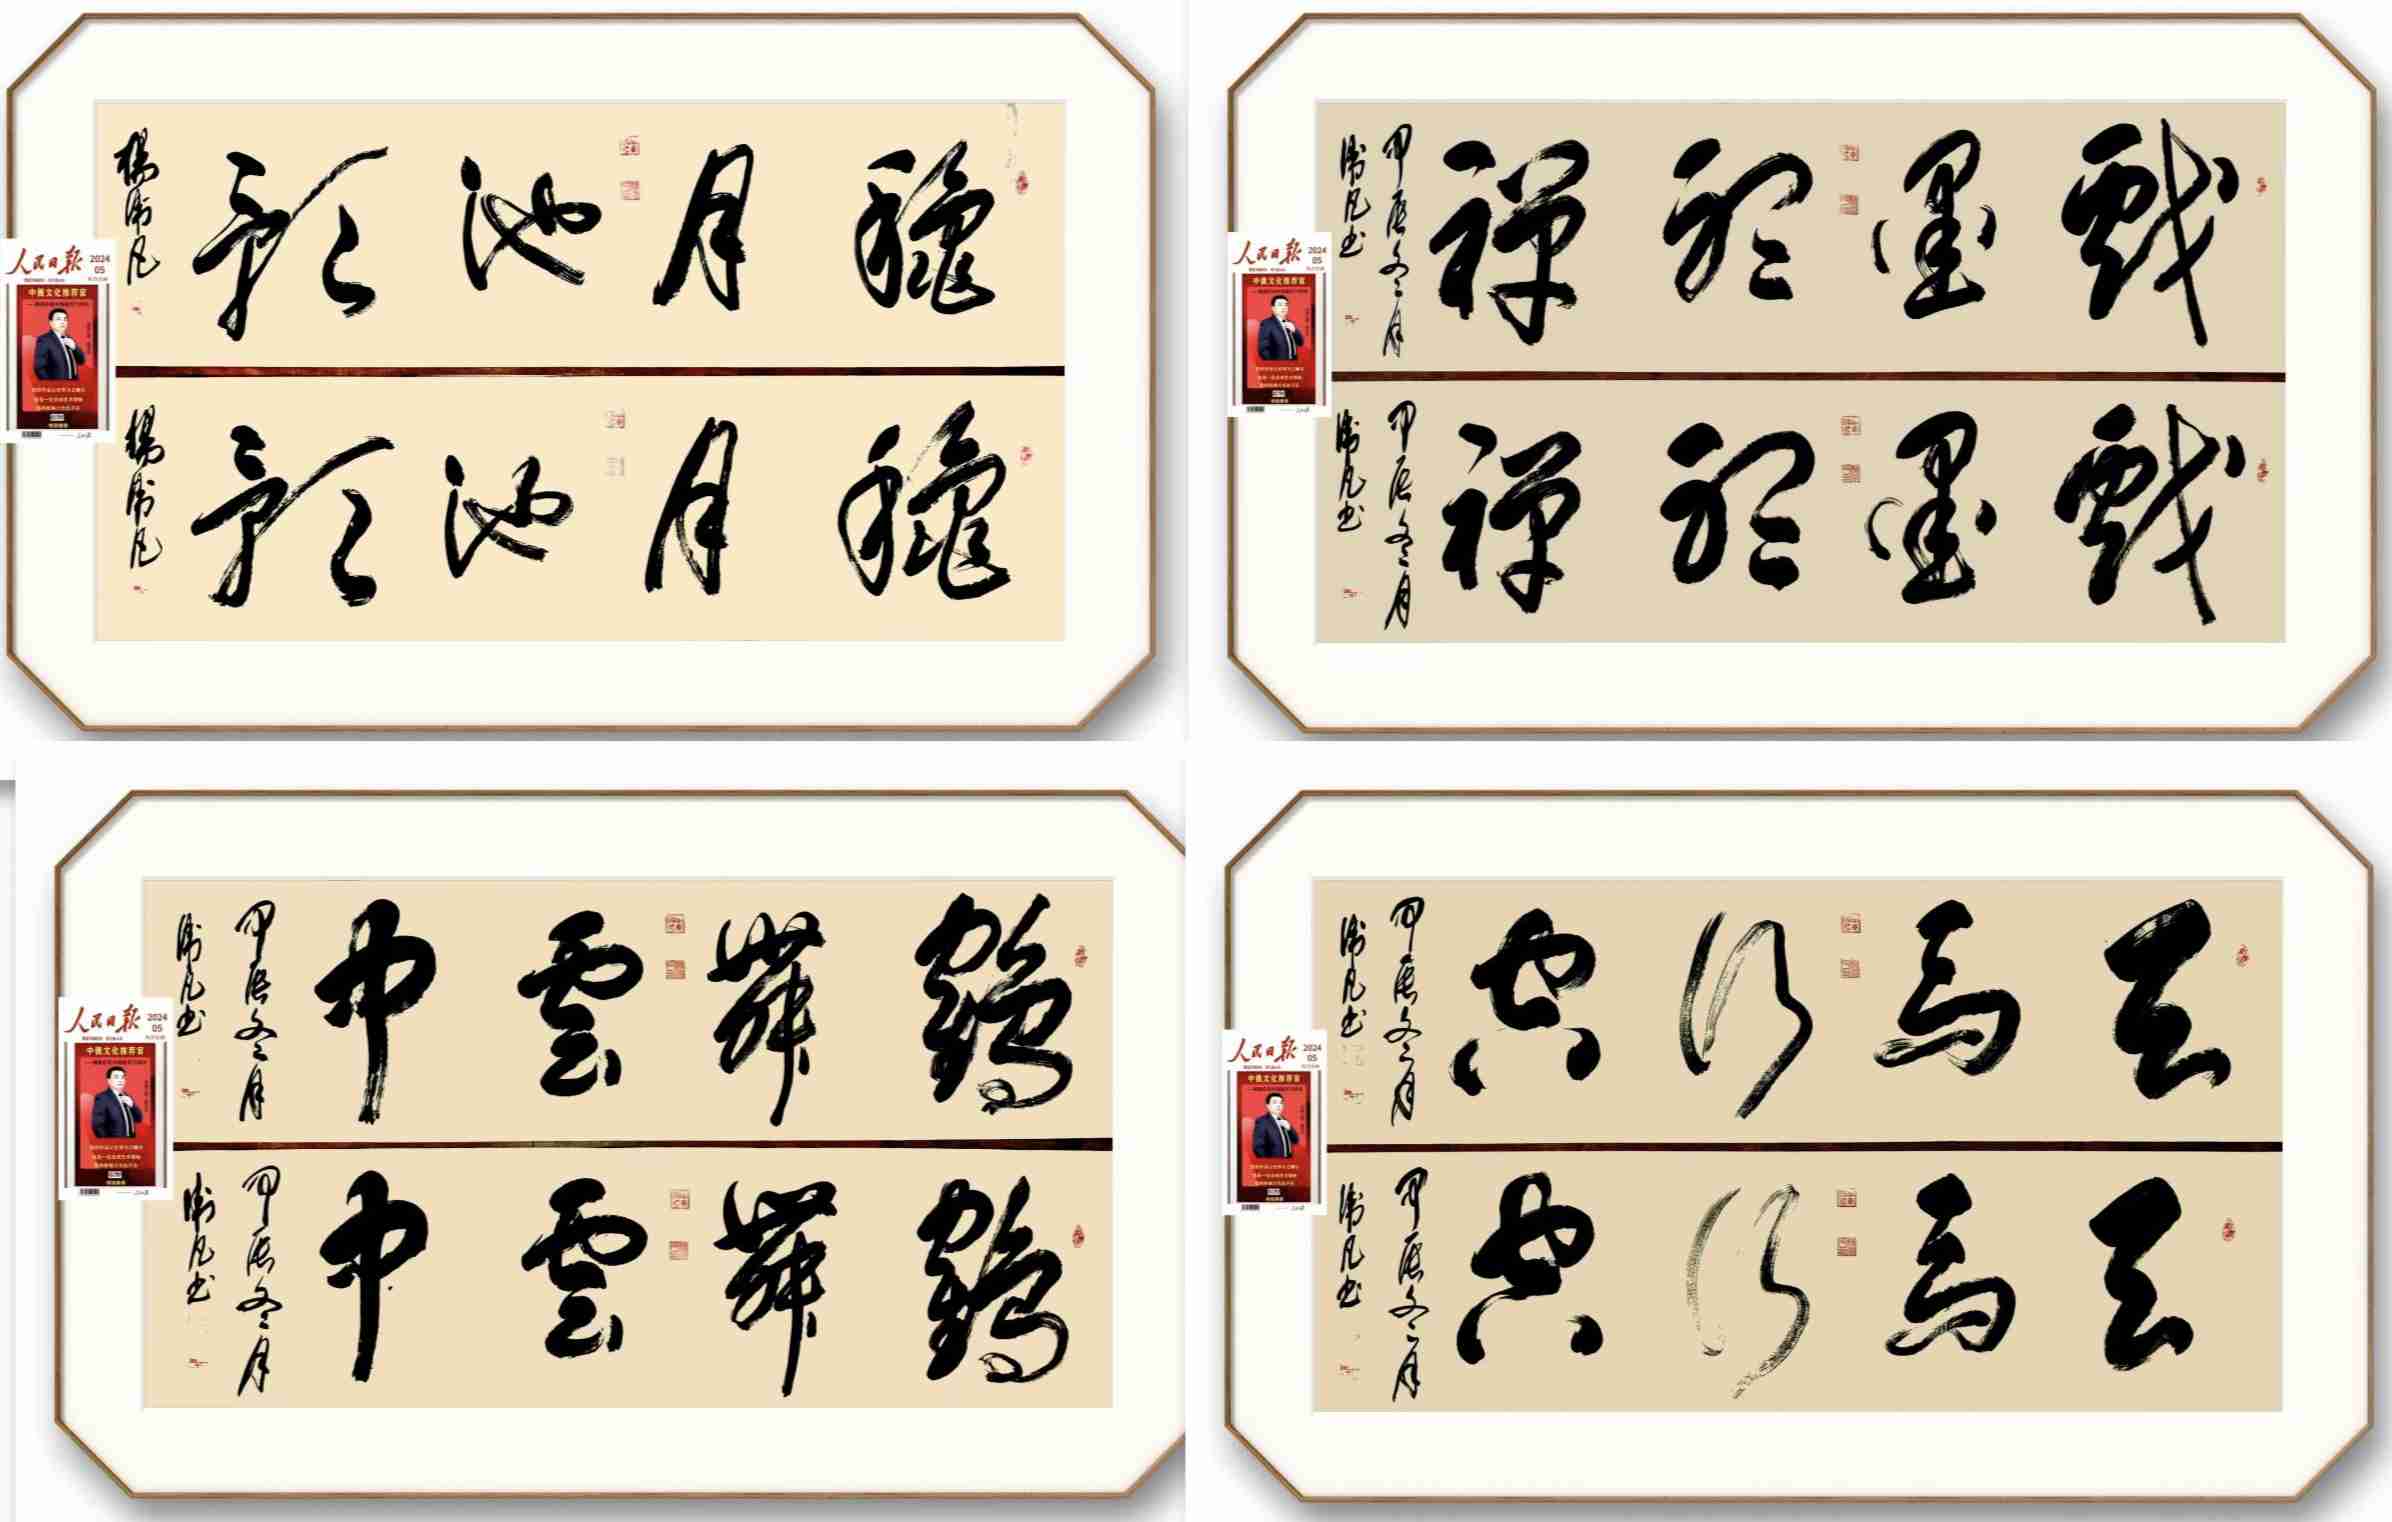 龝月池影
楊衛凡
龝月池影
楊衛凡
戲墨於禪
甲辰冬月
衛凡书
戲墨於禪
甲辰冬月
衛凡书
鶴舞雲中
甲辰冬月
衛凡书
鶴舞雲中
甲辰冬月
衛凡书
天馬行空
甲辰冬月
衛凡书
天馬行空
甲辰冬月
衛凡书
人民日报 2024
05
中俄文化推荐官
人民日报 2024
05
中俄文化推荐官
人民日报 2024
05
中俄文化推荐官
人民日报 2024
05
中俄文化推荐官